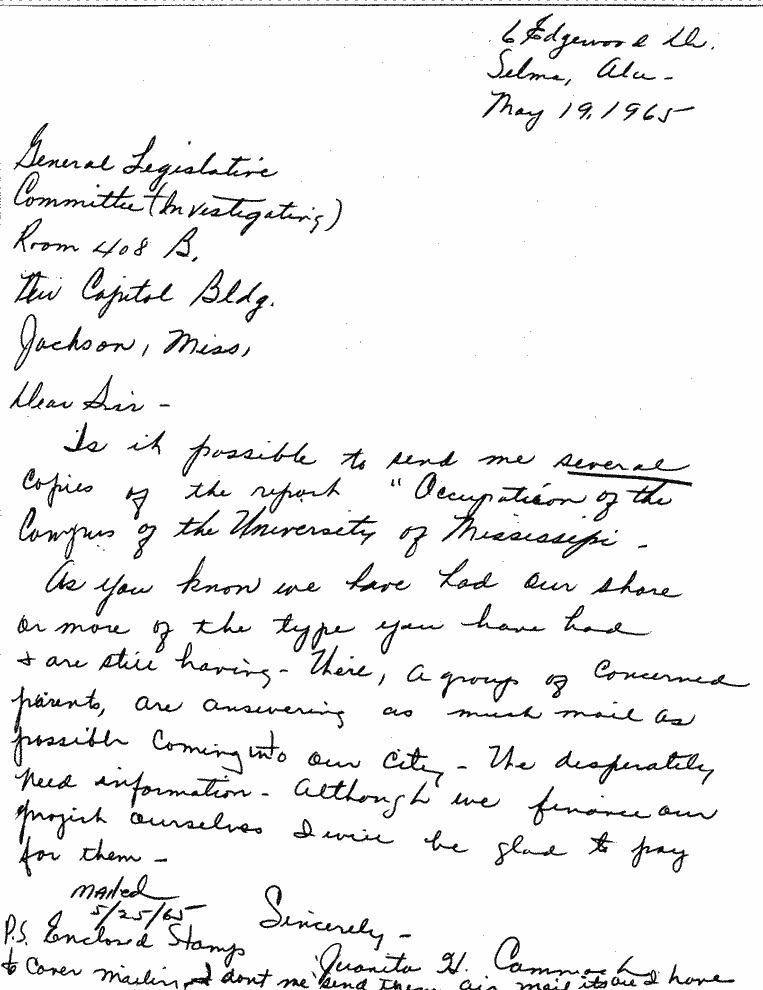 6 Edgewood Dr.
Selma, Ala -
May 19, 1965
General Legislative
Committee (Investigating)
Room 408 B.
New Capitol Bldg.
Jackson, Miss,
Dear Sir -
Is it possible to send me several
copies of the report "Occupation of the
Campus of the University of Mississippi -
As you know we have had our share
or more of the type you have had
& are still having - We, a group of Concerned
parents, are answering as much mail as
possible coming into our city - We desperately
need information - Although we finance our
project ourselves I will be glad to pay
for them -
Mailed
5/25/65
Sincerely -
P.S. Enclosed Stamps
Juanita H.
to cover mailing I dont send them air mail I have